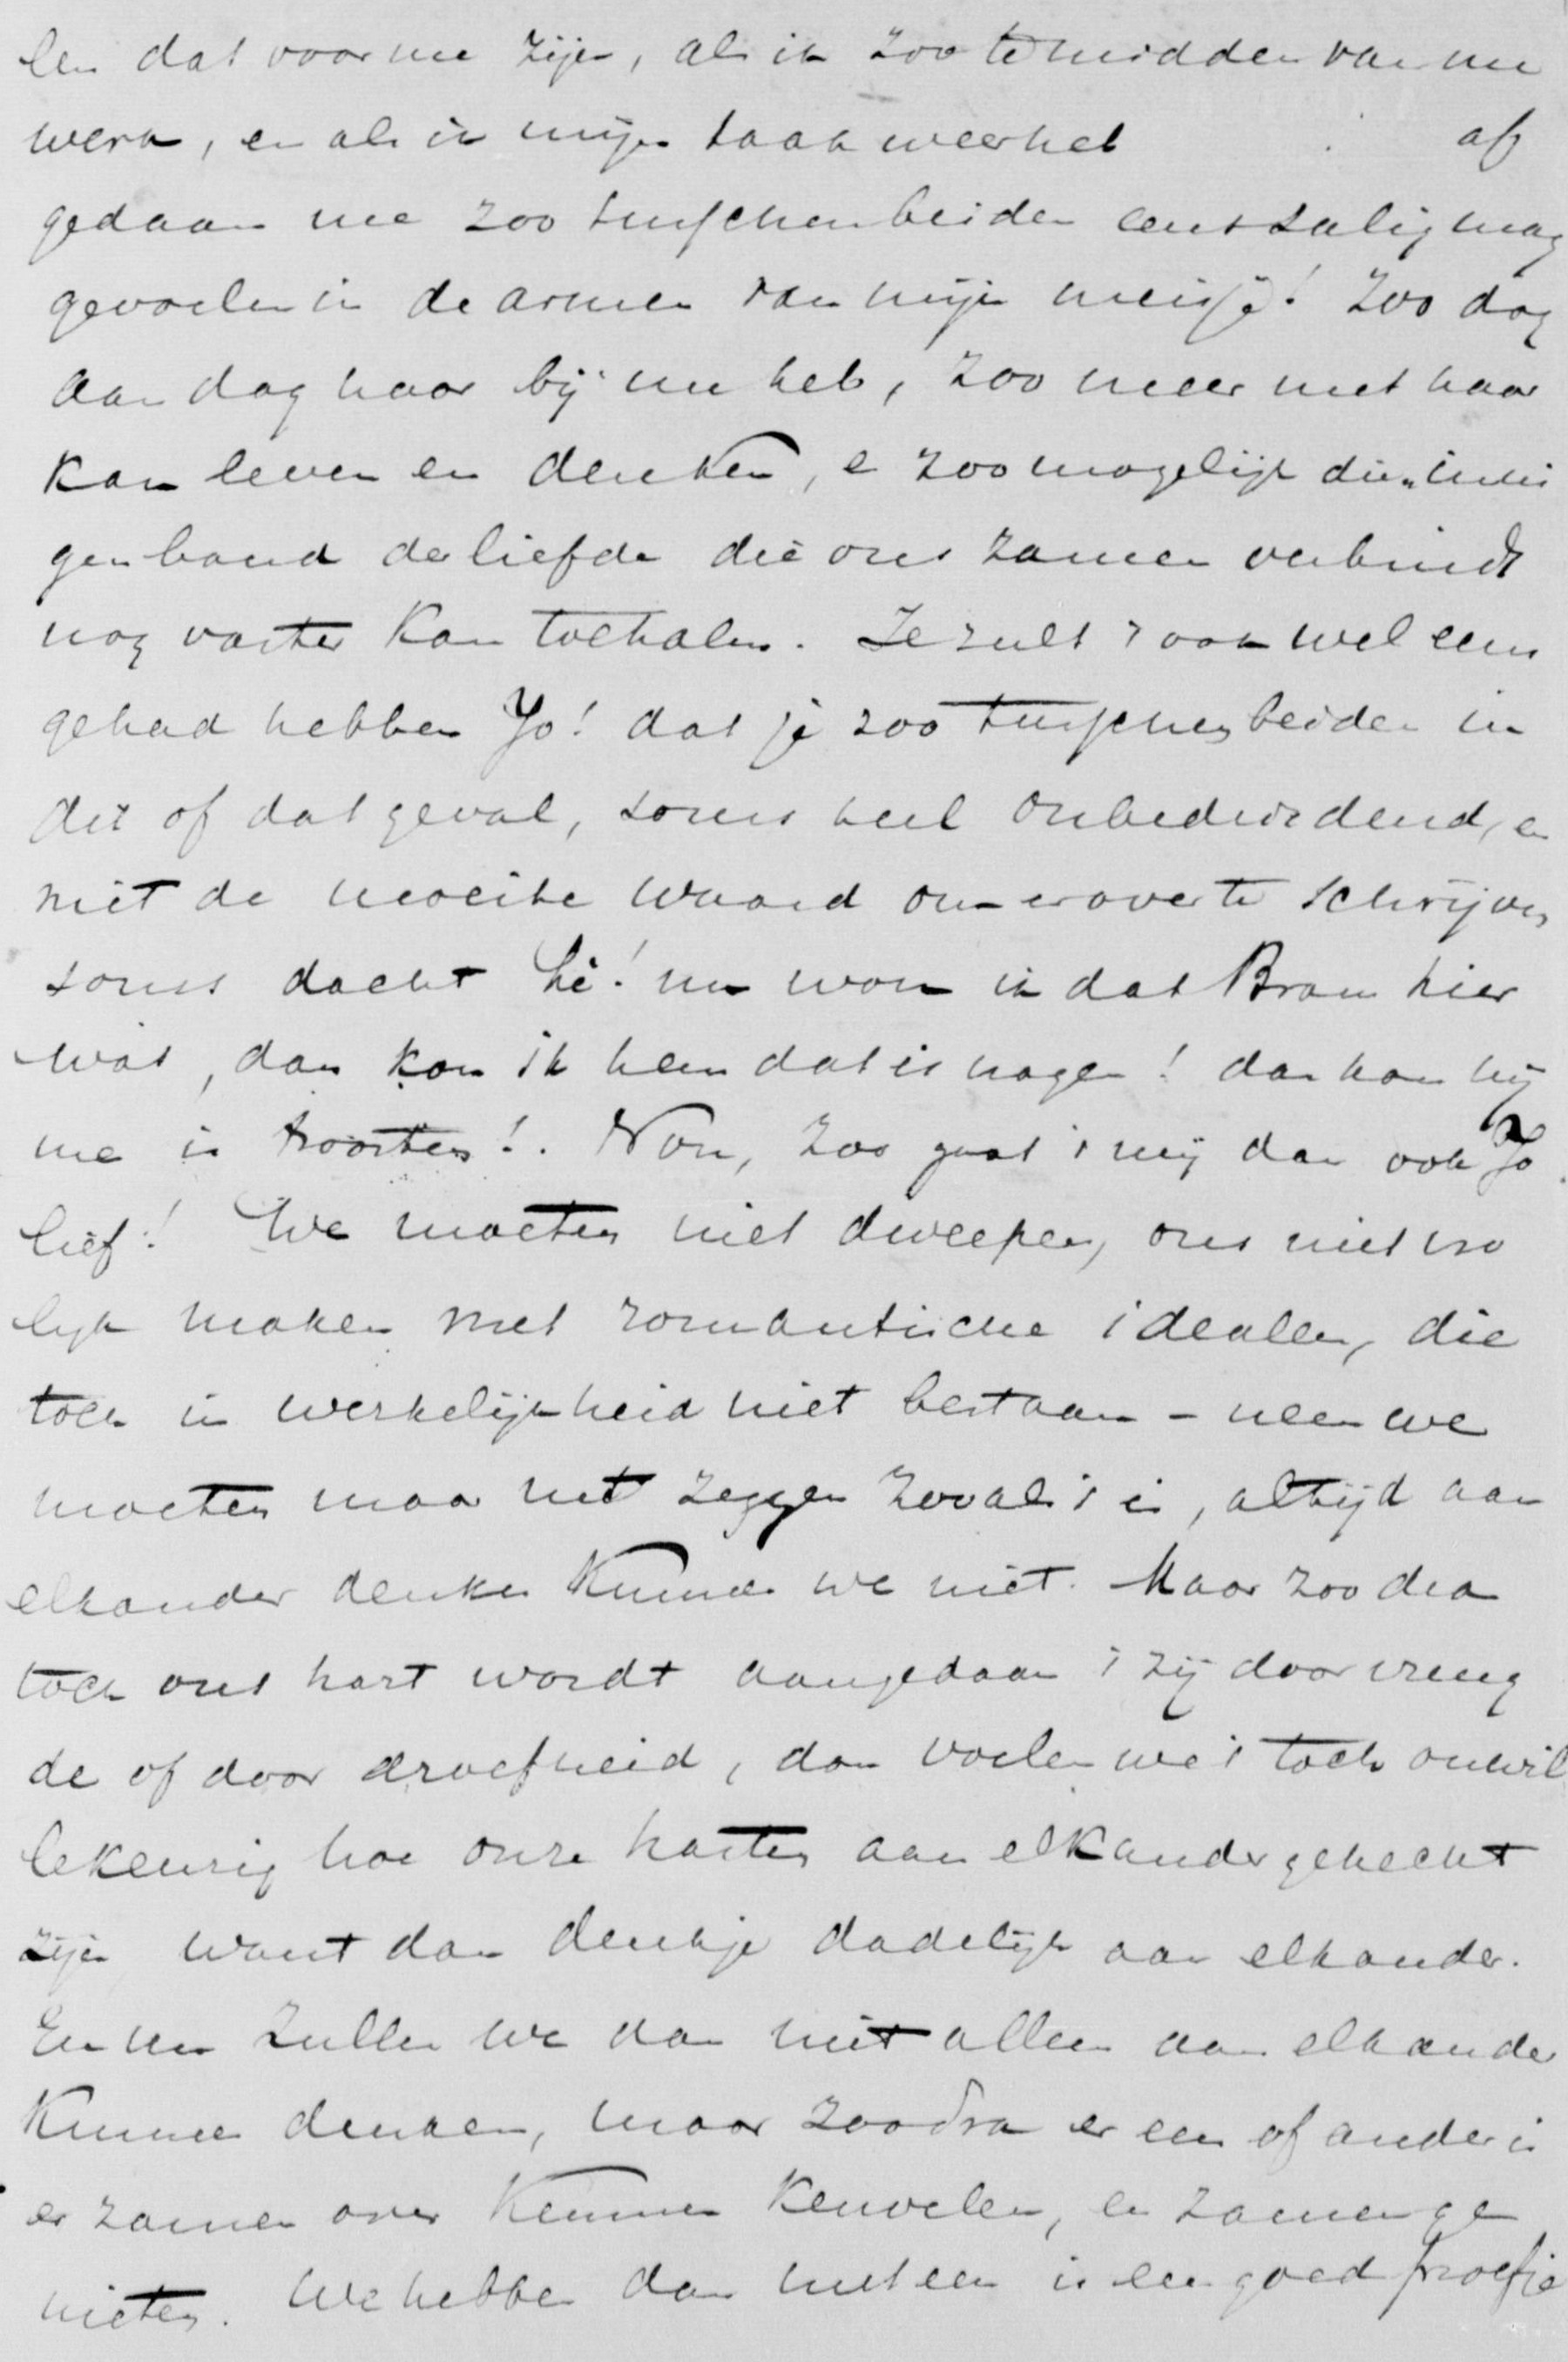 len dat voor me zijn, als ik zoo te midden van me
werk, en als ik mijn taak weer heb af
gedaan me zoo tusschenbeiden eens zalig mag
gevoelen in de armen van mijn meisje! Zoo dag
aan dag haar bij me heb, zoo meer met haar
kan leven en denken, en zoo mogelijk die inni
gen band der liefde die ons zamen verbindt
nog vaster kan toehalen. Je zult 't ook wel eens
gehad hebben Jo! dat je zoo tusschenbeiden in
dit of dat geval, soms heel onbeduidend, en
niet de moeite waard om erover te schrijven
soms dacht hè! nu wou ik dat Bram hier
was, dan kon ik hem dat is vragen! dan kon hij
me is troosten!. Nou, zoo gaat 't mij dan ook Jo
lief! We moeten niet dweepen, ons niet vro
lijk maken met romantische idealen, die
toch in werkelijkheid niet bestaan - neen we
moeten maar net zeggen zooals 't is, altijd aan
elkander denken kunnen we niet. Maar zoodra
toch ons hart wordt aangedaan 't zij door vreug
de of door droefheid, dan voelen we 't toch onwil
lekeurig hoe onze harten aan elkander gehecht
zijn want dan denk je dadelijk aan elkander.
En nu zullen we dan niet alleen aan elkander
kunnen denken, maar zoodra er een of ander is
er zamen over kunnen keuvelen, en zamen ge
nieten. We hebben dan meteen is een goed proefje